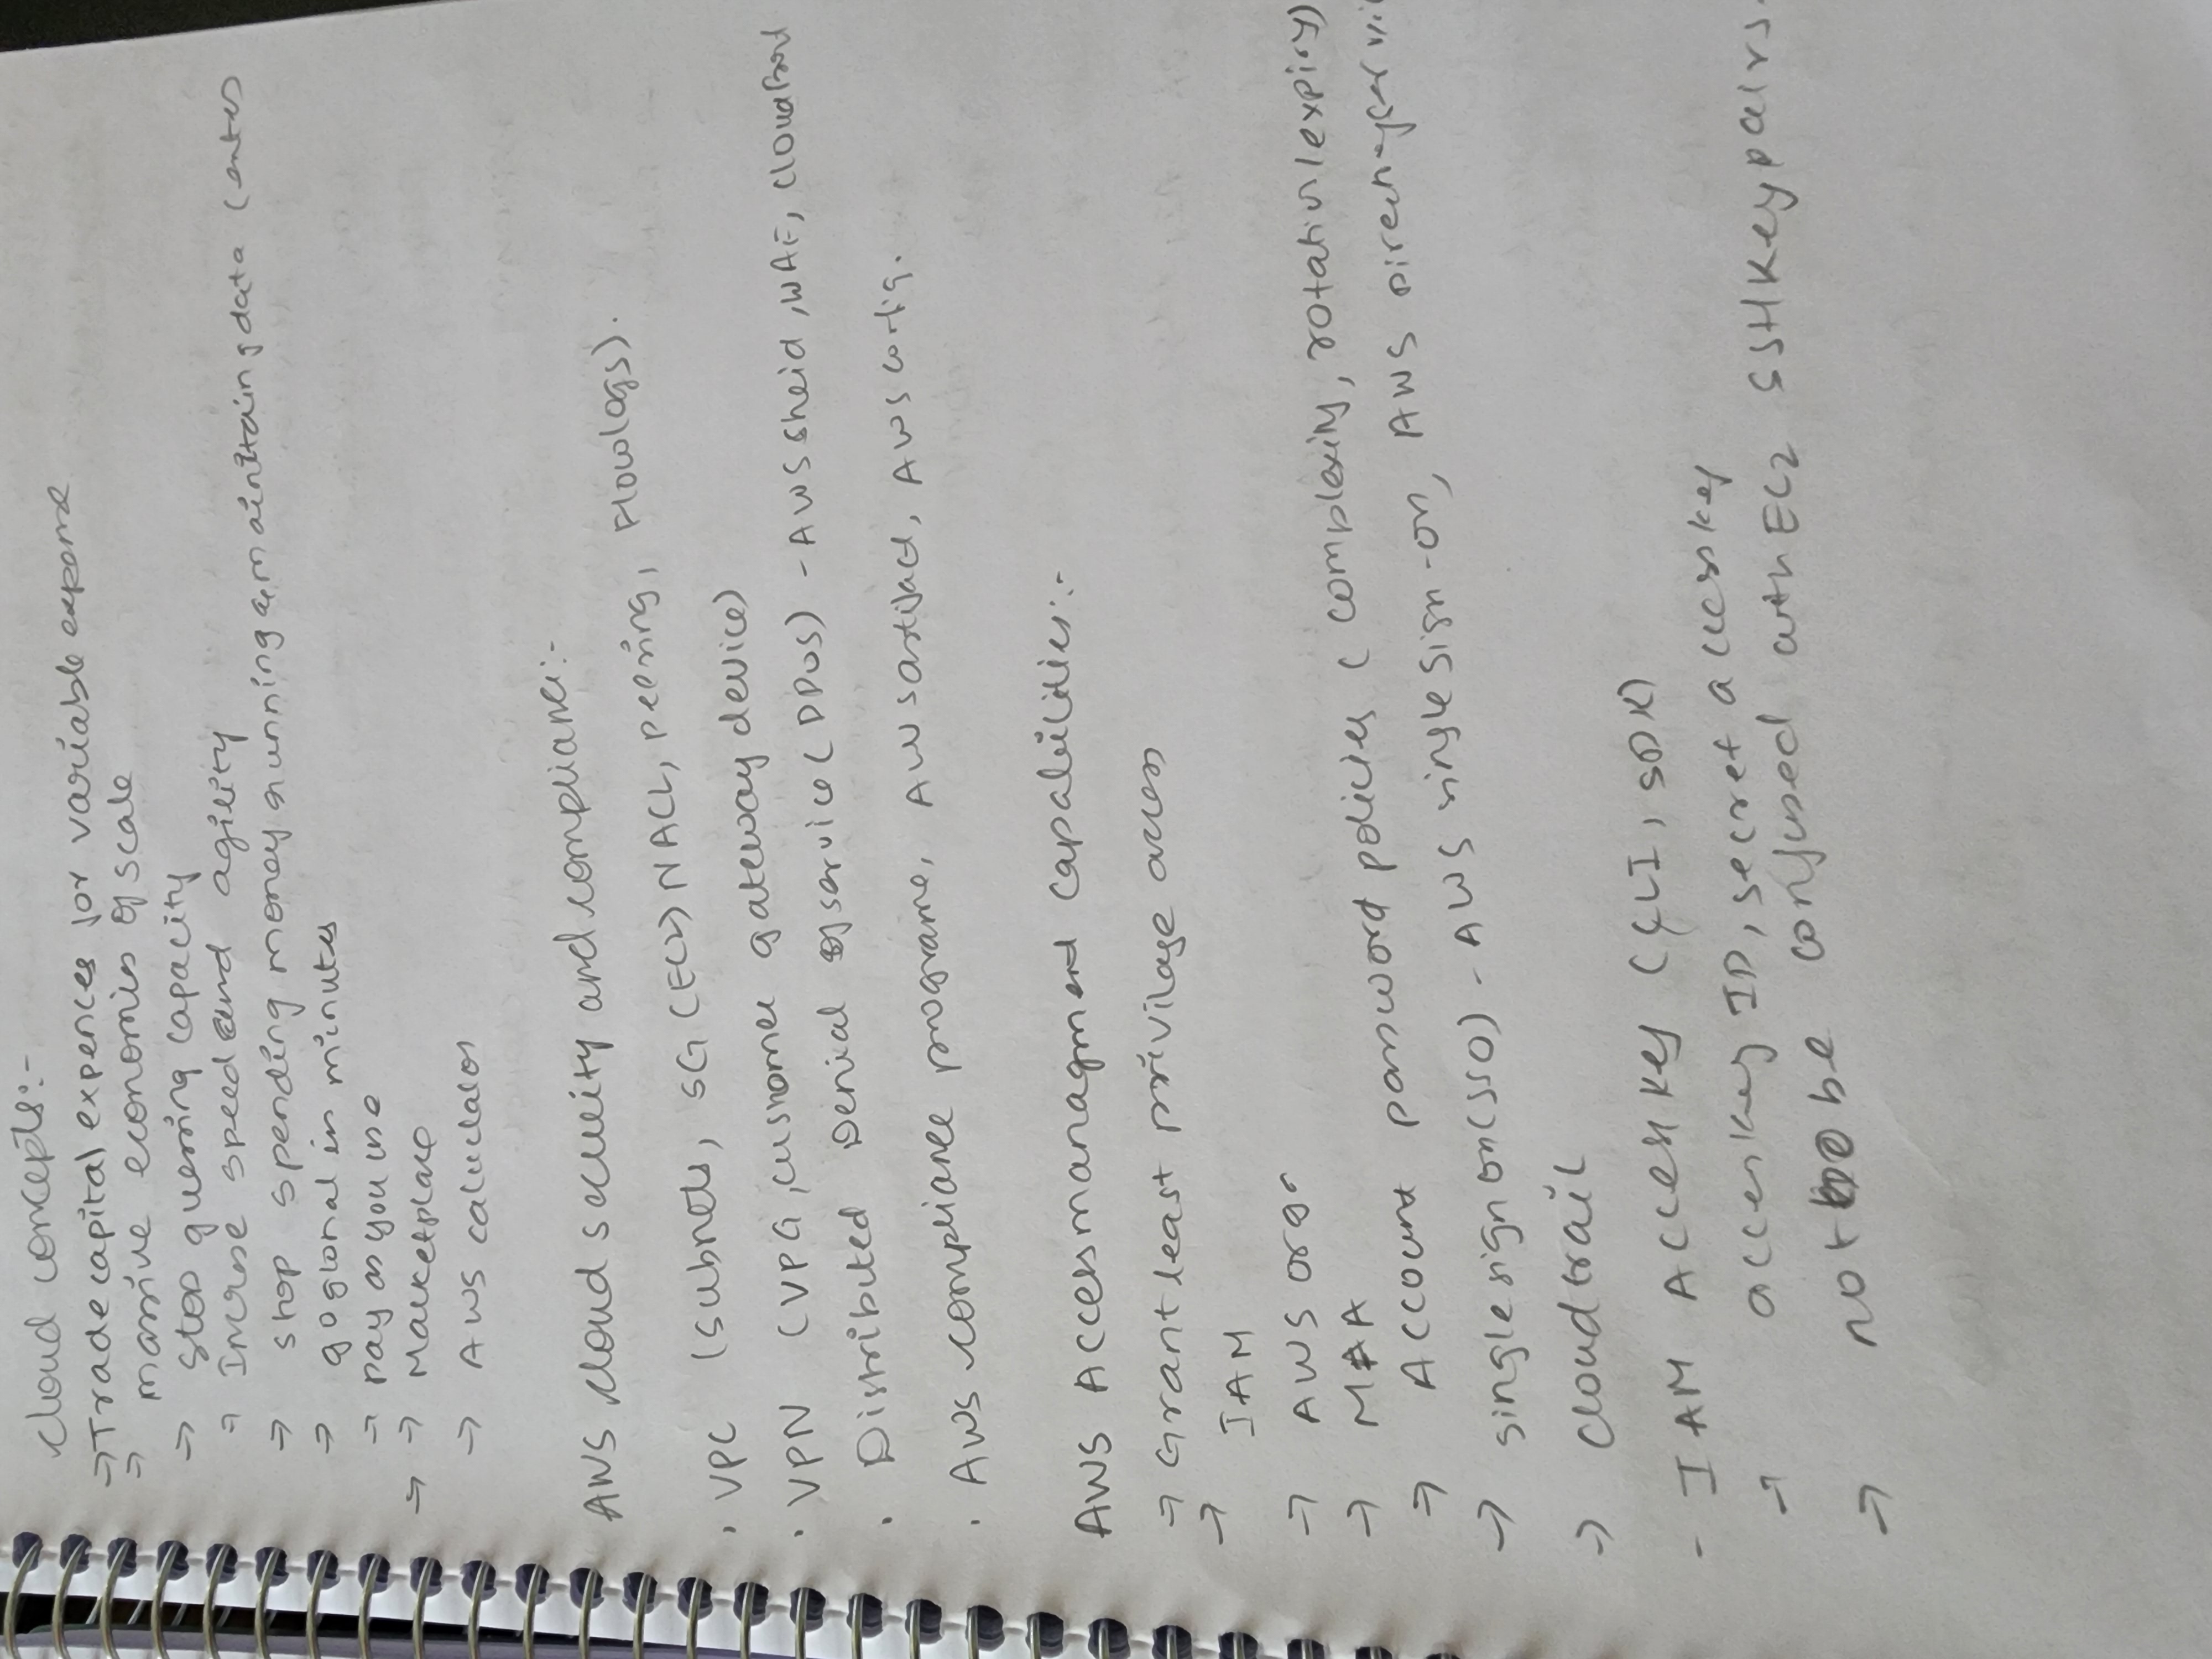 cloud concepts:-
→ Trade capital expences for variable expense
→ massive economies of scale
→ stop guessing capacity
→ Increse speed and agility
→ stop spending money running & mainitaing data centes
→ go glonal in minutes
→ pay as you use
→ → Marketplace
→ AWS calculator
AWS cloud security and compliance:-
· VPC (subnets, SG (EC2) NACL, peering, Flowlogs).
· VPN (VPG, customer gateway device)
· Distributed Denial of service (DDoS) - AWS sheid, WAF,
· AWS compliance programe, AWS artifact, AWS config.
AWS Access managment capabilities:-
→ Grant least privilage access
→ IAM
→ AWS orgs
→ MFA
→ Account password policies (complexity, rotation/expiry)
→ single sign on (SSO) - AWS single sign-on, AWS
→ cloudtrail
- IAM Access key (CLI, SDK)
→ access key ID, secret access key
→ not be confused with EC2 SSH key pairs.